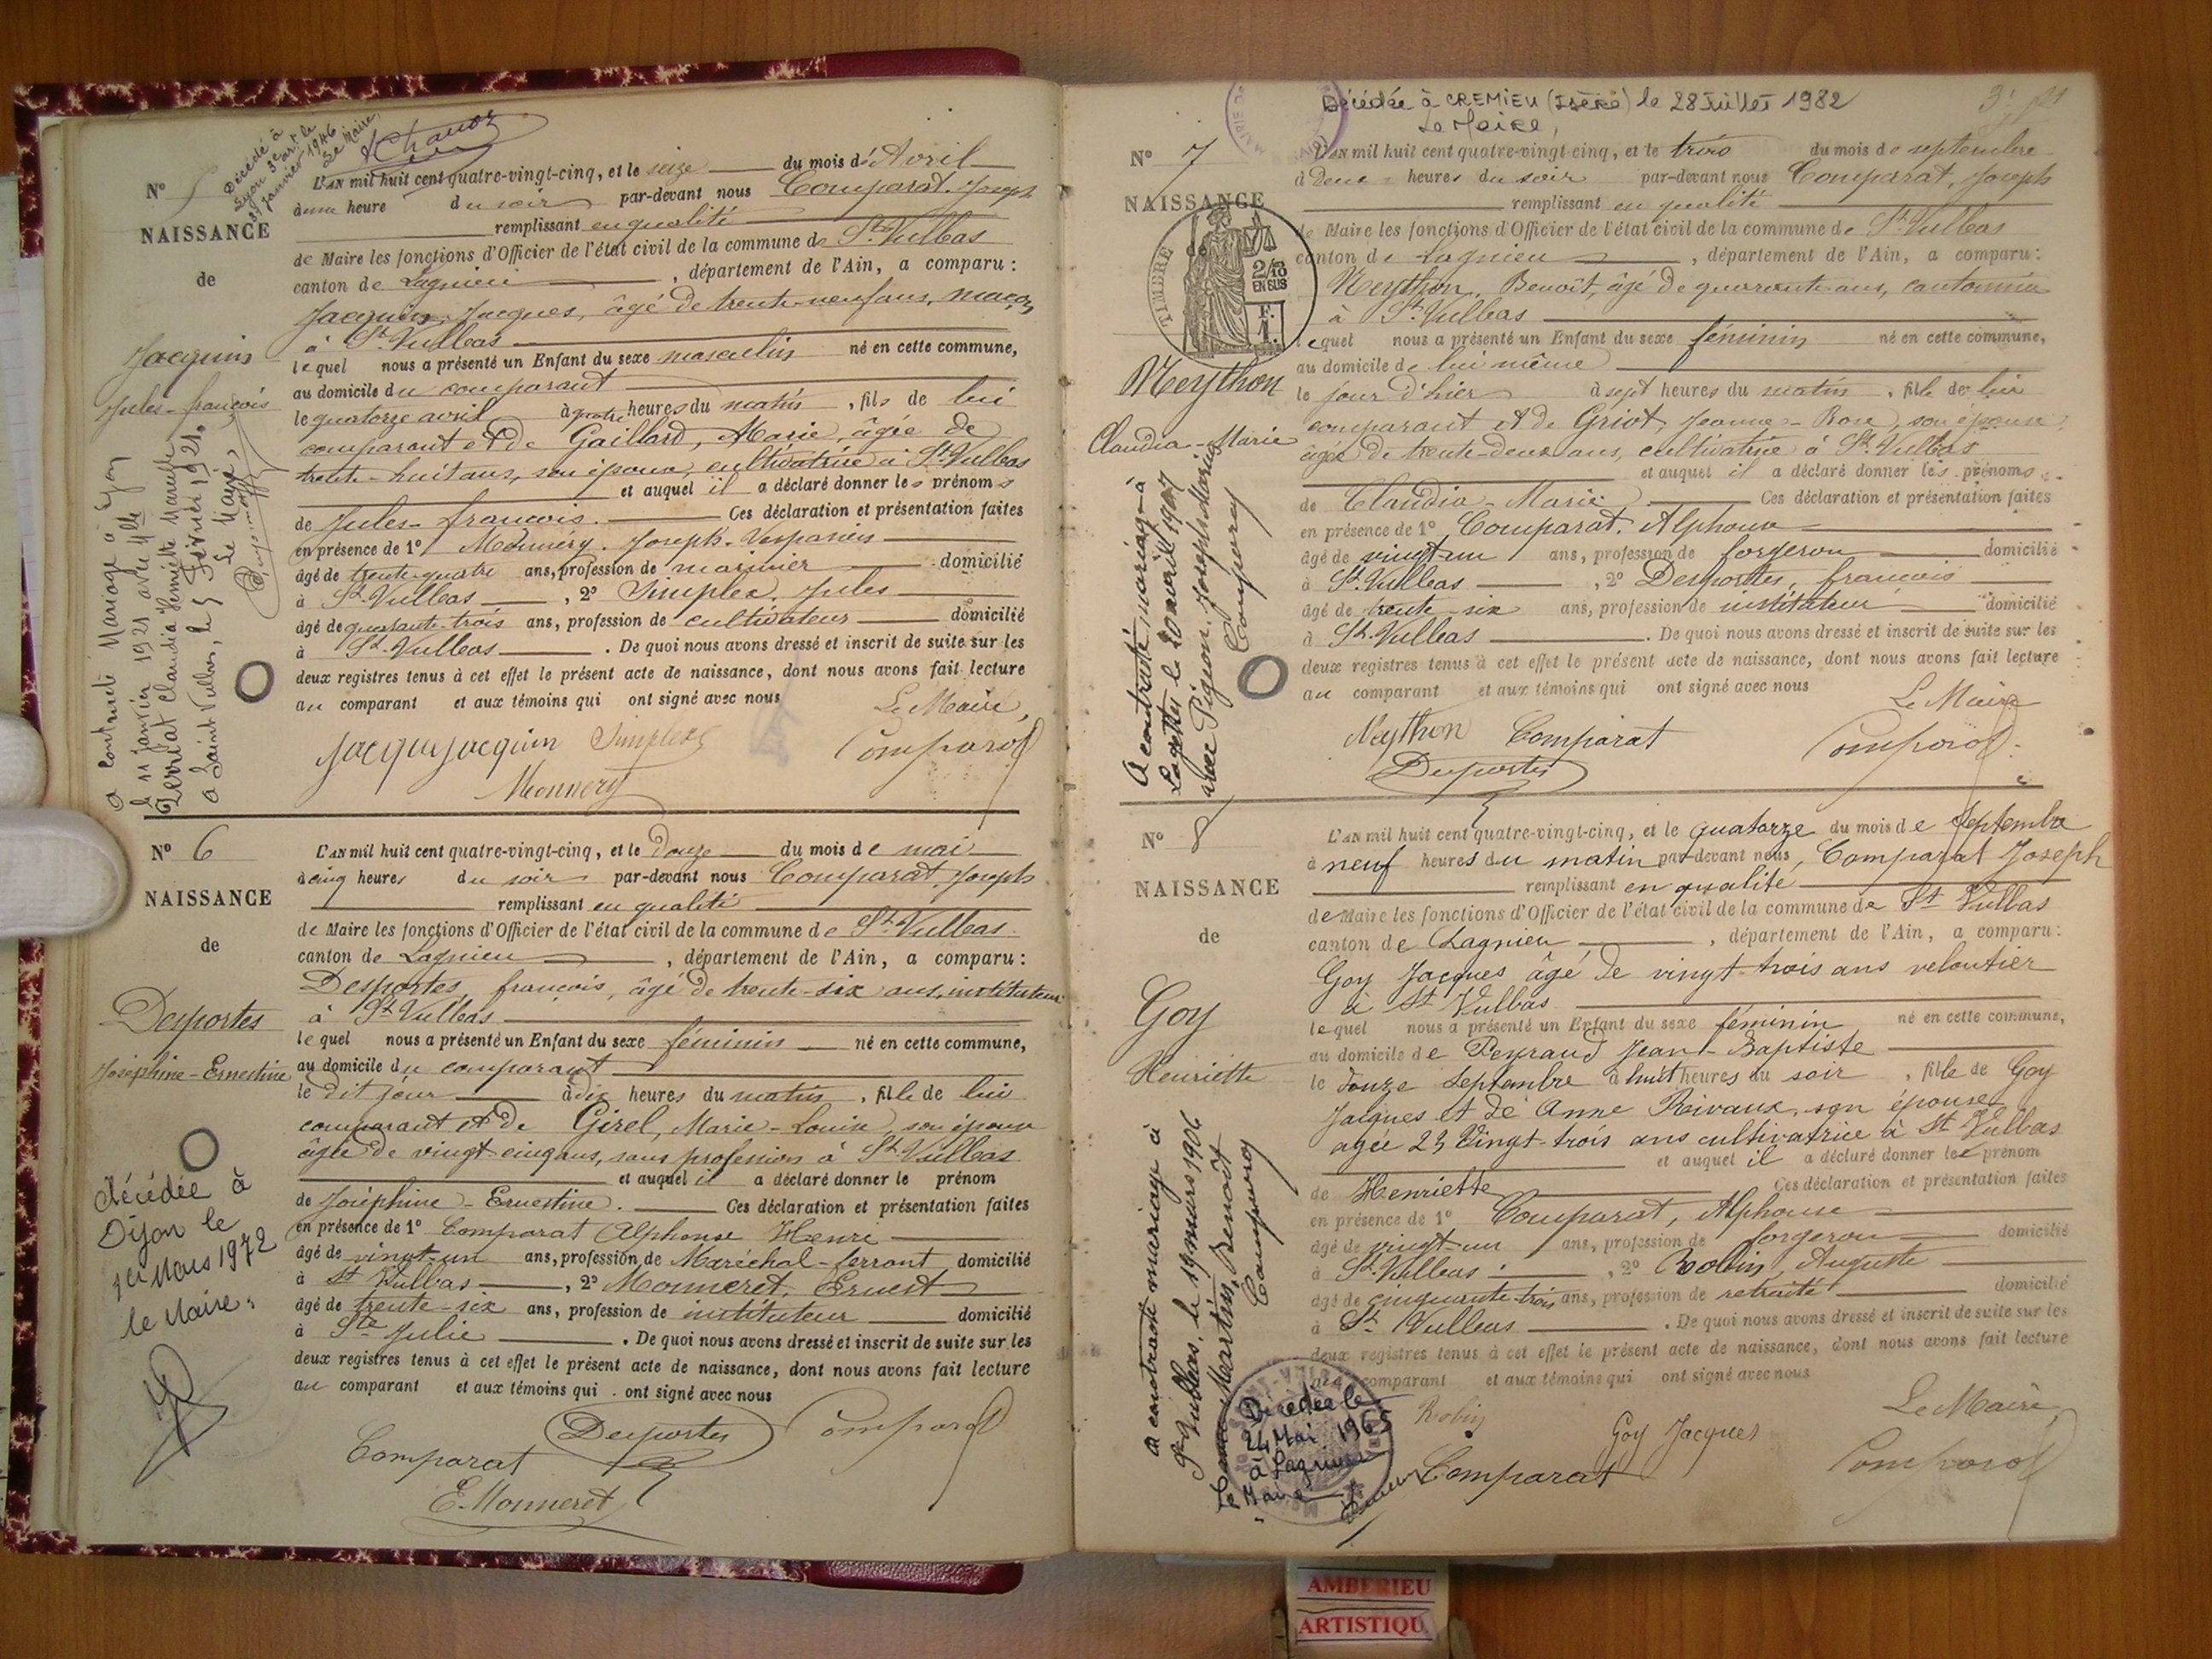 Décédé à
Lyon 3e art. le
31 Janvier 1946
Le Maire,
N° 5
NAISSANCE
de
Jacquin
Jules-françois
L'AN mil huit cent quatre-vingt-cinq, et le seize du mois d'Avril
à une heure du soir par-devant nous Comparat, Joseph
remplissant en qualité
de Maire les fonctions d'Officier de l'état civil de la commune de St. Vulbas
canton de Lagnieu, département de l'Ain, a comparu :
Jacquin, Jacques, âgé de trente-neuf ans, maçon
à St. Vulbas
lequel nous a présenté un Enfant du sexe masculin né en cette commune,
au domicile du comparant
le quatorze avril à quatre heures du matin, fils de lui
comparant et de Gaillard, Marie, âgée de
trente-huit ans, son épouse, cultivatrice à St. Vulbas
et auquel il a déclaré donner les prénoms
de Jules-françois. Ces déclaration et présentation faites
en présence de 1° Monnery, Joseph-Vespasien
âgé de trente-quatre ans, profession de marinier domicilié
à St. Vulbas, 2° Simplex, Jules
âgé de quarante-trois ans, profession de cultivateur domicilié
à St. Vulbas. De quoi nous avons dressé et inscrit de suite sur les
deux registres tenus à cet effet le présent acte de naissance, dont nous avons fait lecture
au comparant et aux témoins qui ont signé avec nous
Le Maire,
Jacque jacquin Simplex Comparat
Monnery
a contracté Mariage à Lyon
le 11 janvier 1921 avec Mlle
Claudia
à Saint Vulbas, le 5 Février 1921.
Le Maire,
N° 6
NAISSANCE
de
Desportes
Joséphine-Ernestine
L'AN mil huit cent quatre-vingt-cinq, et le douze du mois de mai
à cinq heures du soir par-devant nous Comparat, Joseph
remplissant en qualité
de Maire les fonctions d'Officier de l'état civil de la commune de St. Vulbas
canton de Lagnieu, département de l'Ain, a comparu :
Desportes, françois, âgé de trente-six ans, instituteur
à St. Vulbas
lequel nous a présenté un Enfant du sexe féminin né en cette commune,
au domicile du comparant
le dit jour à dix heures du matin, fille de lui
comparant et de Girel, Marie-Louise, son épouse
âgée de vingt-cinq ans, sans profession à St. Vulbas
et auquel il a déclaré donner le prénom
de Joséphine-Ernestine. Ces déclaration et présentation faites
en présence de 1° Comparat Alphonse Henri
âgé de vingt-un ans, profession de Maréchal-ferrant domicilié
à St Vulbas, 2° Monneret, Ernest
âgé de trente-six ans, profession de instituteur domicilié
à Ste Julie. De quoi nous avons dressé et inscrit de suite sur les
deux registres tenus à cet effet le présent acte de naissance, dont nous avons fait lecture
au comparant et aux témoins qui ont signé avec nous
Comparat Desportes Comparat
E. Monneret
Décédée à
Dijon le
1er Mars 1972
le Maire,
Décédée à CREMIEU (Isère) le 28 Juillet 1982
Le Maire,
N° 7
NAISSANCE
de
TIMBRE
2/10
EN SUS
F.
1.
Neython
Claudia-Marie
L'AN mil huit cent quatre-vingt-cinq, et le trois du mois de septembre
à deux heures du soir par-devant nous Comparat, Joseph
remplissant en qualité
de Maire les fonctions d'Officier de l'état civil de la commune de St. Vulbas
canton de Lagnieu, département de l'Ain, a comparu :
Neython, Benoît, âgé de quarante ans, cantonnier
à St. Vulbas
lequel nous a présenté un Enfant du sexe féminin né en cette commune,
au domicile de lui même
le jour d'hier à sept heures du matin, fille de lui
comparant et de Griot, Jeanne-Rose, son épouse,
âgée de trente-deux ans, cultivatrice à St. Vulbas
et auquel il a déclaré donner les prénoms
de Claudia-Marie. Ces déclaration et présentation faites
en présence de 1° Comparat, Alphonse
âgé de vingt-un ans, profession de forgeron domicilié
à St. Vulbas, 2° Desportes, françois
âgé de trente-six ans, profession de instituteur domicilié
à St. Vulbas. De quoi nous avons dressé et inscrit de suite sur les
deux registres tenus à cet effet le présent acte de naissance, dont nous avons fait lecture
au comparant et aux témoins qui ont signé avec nous
Le Maire
Neython Comparat Comparat
Desportes
A contracté mariage à
Loyettes le 20 avril 1907
avec Pigeon, Joseph Marie
N° 8
NAISSANCE
de
Goy
Henriette
L'AN mil huit cent quatre-vingt-cinq, et le quatorze du mois de septembre
à neuf heures du matin par-devant nous, Comparat Joseph
remplissant en qualité
de Maire les fonctions d'Officier de l'état civil de la commune de St Vulbas
canton de Lagnieu, département de l'Ain, a comparu :
Goy Jacques âgé de vingt-trois ans veloutier
à St Vulbas
lequel nous a présenté un Enfant du sexe féminin né en cette commune,
au domicile de Peyraud Jean-Baptiste
le douze septembre à huit heures du soir, fille de Goy
Jacques et de Anne Rivaux, son épouse
agée 23 Vingt-trois ans cultivatrice à St Vulbas
et auquel il a déclaré donner le prénom
de Henriette Ces déclaration et présentation faites
en présence de 1° Comparat, Alphonse
âgé de vingt-un ans, profession de forgeron domicilié
à St. Vulbas, 2° Robin, Auguste
âgé de cinquante-trois ans, profession de retraité domicilié
à St. Vulbas. De quoi nous avons dressé et inscrit de suite sur les
deux registres tenus à cet effet le présent acte de naissance, dont nous avons fait lecture
au comparant et aux témoins qui ont signé avec nous
Le Maire,
Robin Goy Jacques
Comparat Comparat
a contracté mariage à
St Vulbas, le 19 mars 1906
Martin, Benoît
Décédée le
24 Mai 1965
à Lagnieu
Le Maire
AMBERIEU
ARTISTIQU